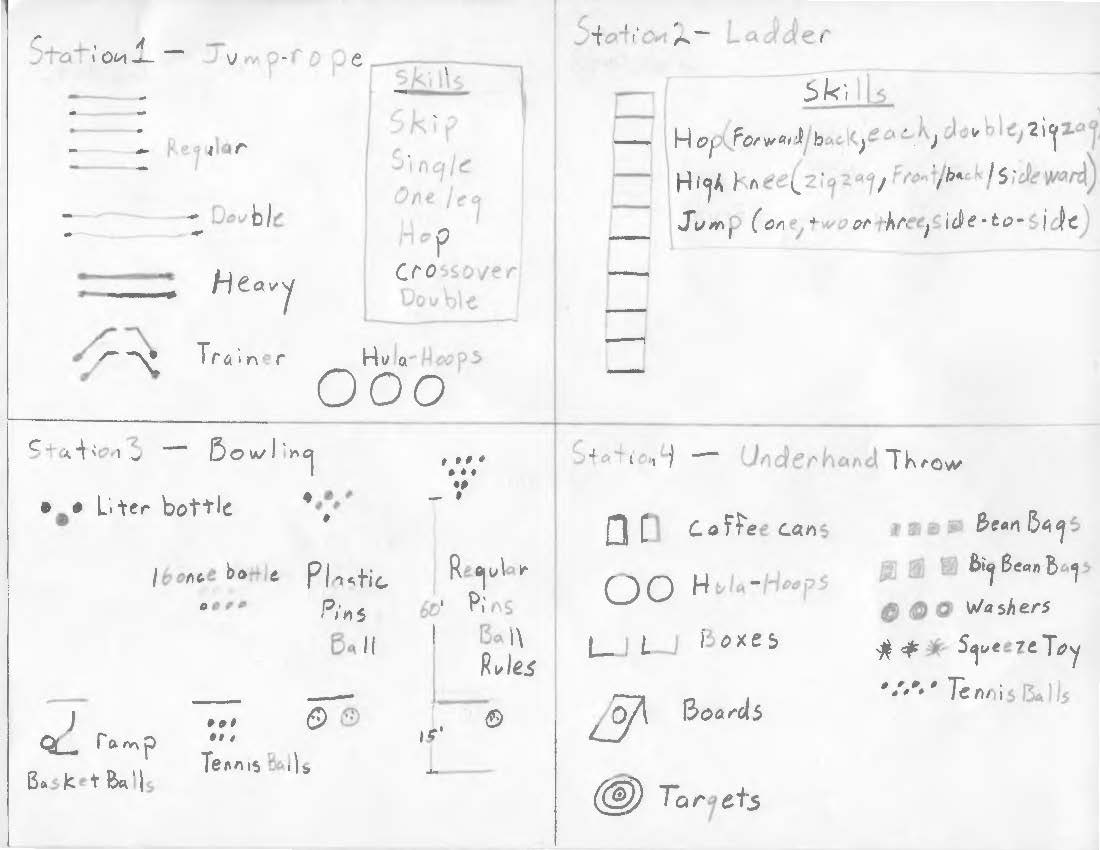 Station 1 - Jump-rope
Regular
Double
Heavy
Trainer
Skills
Skip
Single
One leg
Hop
Crossover
Double
Hula-Hoops
Station 2 - Ladder
Skills
Hop (Forward/back, each, double, zigzag)
High Knee (zigzag, Front/back/Sideward)
Jump (one, two or three, side-to-side)
Station 3 - Bowling
Liter bottle
16 once bottle
Plastic
Pins
Ball
Regular
Pins
Ball
Rules
60'
15'
ramp
Basket Balls
Tennis Balls
Station 4 - Underhand Throw
Coffee cans
Hula-Hoops
Boxes
Boards
Targets
Bean Bags
Big Bean Bags
Washers
Squeeze Toy
Tennis Balls